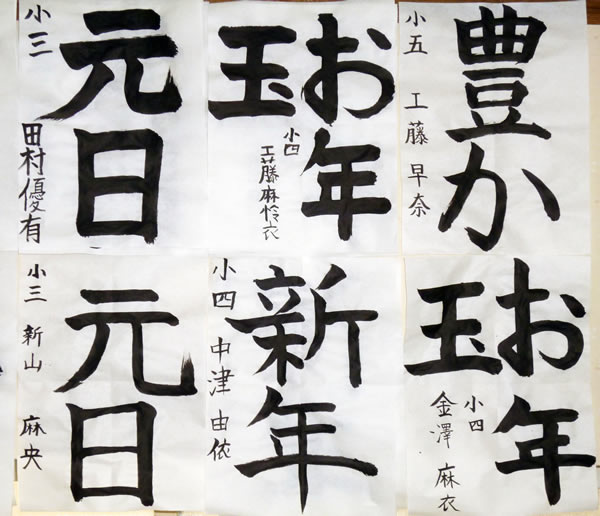 豊か
小五 工藤早奈
お年
玉
小四 工藤麻怜衣
元日
小三 田村優有
お年
玉
小四 金澤麻衣
新年
小四 中津由依
元日
小三 新山麻央